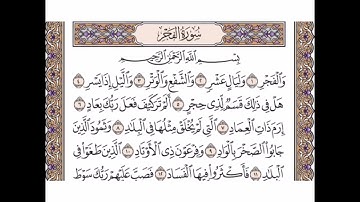 سُورَةُ الْفَجْرِ
بِسْمِ اللَّهِ الرَّحْمَٰنِ الرَّحِيمِ
وَالْفَجْرِ ١ وَلَيَالٍ عَشْرٍ ٢ وَالشَّفْعِ وَالْوَتْرِ ٣ وَالَّيْلِ إِذَا يَسْرِ ٤
هَلْ فِي ذَٰلِكَ قَسَمٌ لِّذِي حِجْرٍ ٥ أَلَمْ تَرَ كَيْفَ فَعَلَ رَبُّكَ بِعَادٍ ٦
إِرَمَ ذَاتِ الْعِمَادِ ٧ الَّتِي لَمْ يُخْلَقْ مِثْلُهَا فِي الْبِلَٰدِ ٨ وَثَمُودَ الَّذِينَ
جَابُوا الصَّخْرَ بِالْوَادِ ٩ وَفِرْعَوْنَ ذِي الْأَوْتَادِ ١٠ الَّذِينَ طَغَوْا فِي
الْبِلَٰدِ ١١ فَأَكْثَرُوا فِيهَا الْفَسَادَ ١٢ فَصَبَّ عَلَيْهِمْ رَبُّكَ سَوْطَ